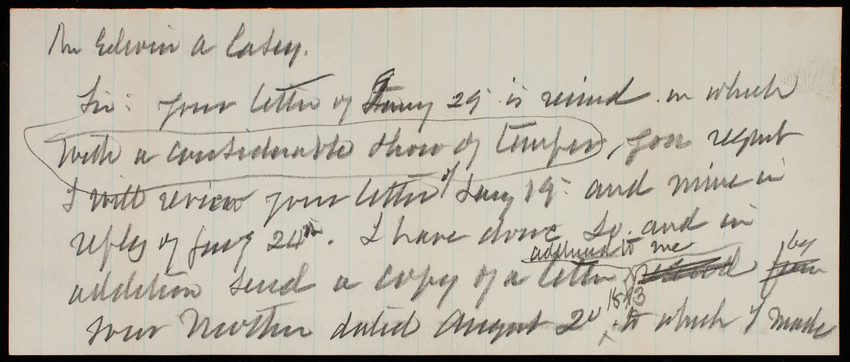 Mr Edwin A Casey.
Sir: Your letter of Jany 29 is recived in which
with a considerable show of temper, you request
I will review your letter of Jany 19 and mine in
reply of Jany 24th. I have done so and in
addressed to me by
addition send a copy of a letter from
your Mother dated August 20 1893 to which I made